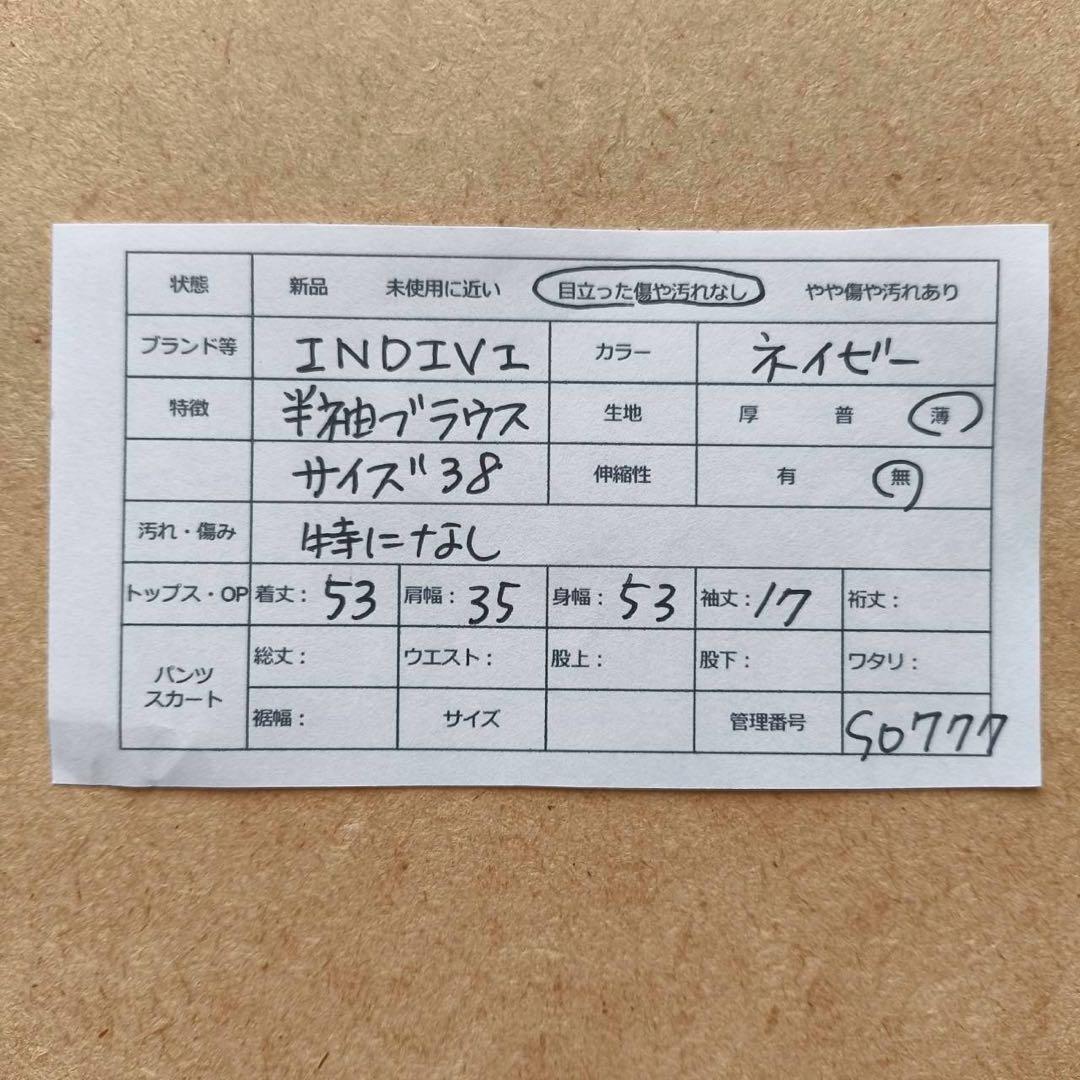 状態 新品 未使用に近い 目立った傷や汚れなし やや傷や汚れあり
ブランド等 INDIVI カラー ネイビー
特徴 半袖ブラウス 生地 厚 普 薄
サイズ38 伸縮性 有 無
汚れ・傷み 特になし
トップス・OP 着丈：53 肩幅：35 身幅：53 袖丈：17 裄丈：
パンツ スカート 総丈： ウエスト： 股上： 股下： ワタリ：
裾幅： サイズ 管理番号 S0777